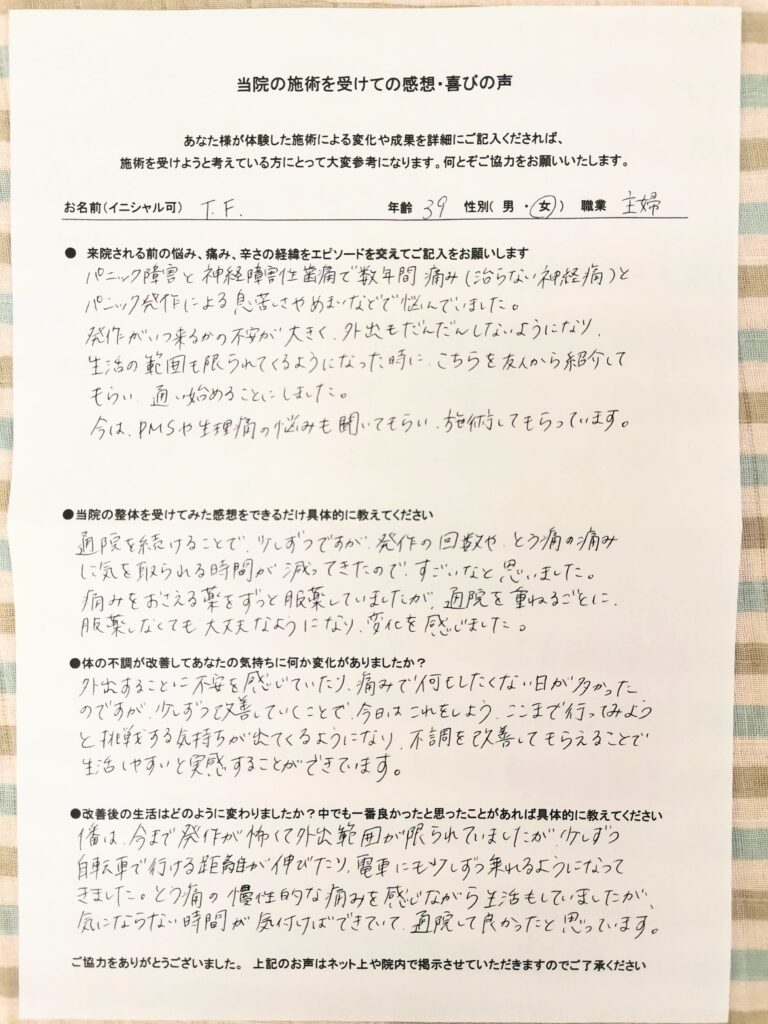 当院の施術を受けての感想・喜びの声
あなた様が体験した施術による変化や成果を詳細にご記入くだされば、
施術を受けようと考えている方にとって大変参考になります。何とぞご協力をお願いいたします。
お名前(イニシャル可) T.F. 年齢 39 性別( 男 ・ 女 ) 職業 主婦
● 来院される前の悩み、痛み、辛さの経緯をエピソードを交えてご記入をお願いします
パニック障害と神経障害性歯痛で数年間痛み(治らない神経病)と
パニック発作による息苦しさやめまいなどで悩んでいました。
発作がいつ来るかの不安が大きく、外出もだんだんしないようになり、
生活の範囲も限られてくるようになった時に、こちらを友人から紹介して
もらい、通い始めることにしました。
今は、PMSや生理痛の悩みも聞いてもらい、施術してもらっています。
●当院の整体を受けてみた感想をできるだけ具体的に教えてください
通院を続けることで、少しずつですが、発作の回数や、とう痛の痛み
に気を取られる時間が減ってきたので、すごいなと思いました。
痛みをおさえる薬をずっと服薬していましたが、通院を重ねるごとに、
服薬しなくても大丈夫なようになり、変化を感じました。
●体の不調が改善してあなたの気持ちに何か変化がありましたか?
外出することに不安を感じていたり、痛みで何もしたくない日が多かった
のですが、少しずつ改善していくことで、今日はこれをしよう、ここまで行ってみよう
と挑戦する気持ちが出てくるようになり、不調を改善してもらえることで
生活しやすいと実感することができています。
●改善後の生活はどのように変わりましたか?中でも一番良かったと思ったことがあれば具体的に教えてください
1番は、今まで発作が怖くて外出範囲が限られていましたが、少しずつ
自転車で行ける距離が伸びたり、電車にも少しずつ乗れるようになって
きました。とう痛の慢性的な痛みを感じながら生活もしていましたが、
気にならない時間が気付けばできていて、通院して良かったと思っています。
ご協力をありがとうございました。 上記のお声はネット上や院内で掲示させていただきますのでご了承ください